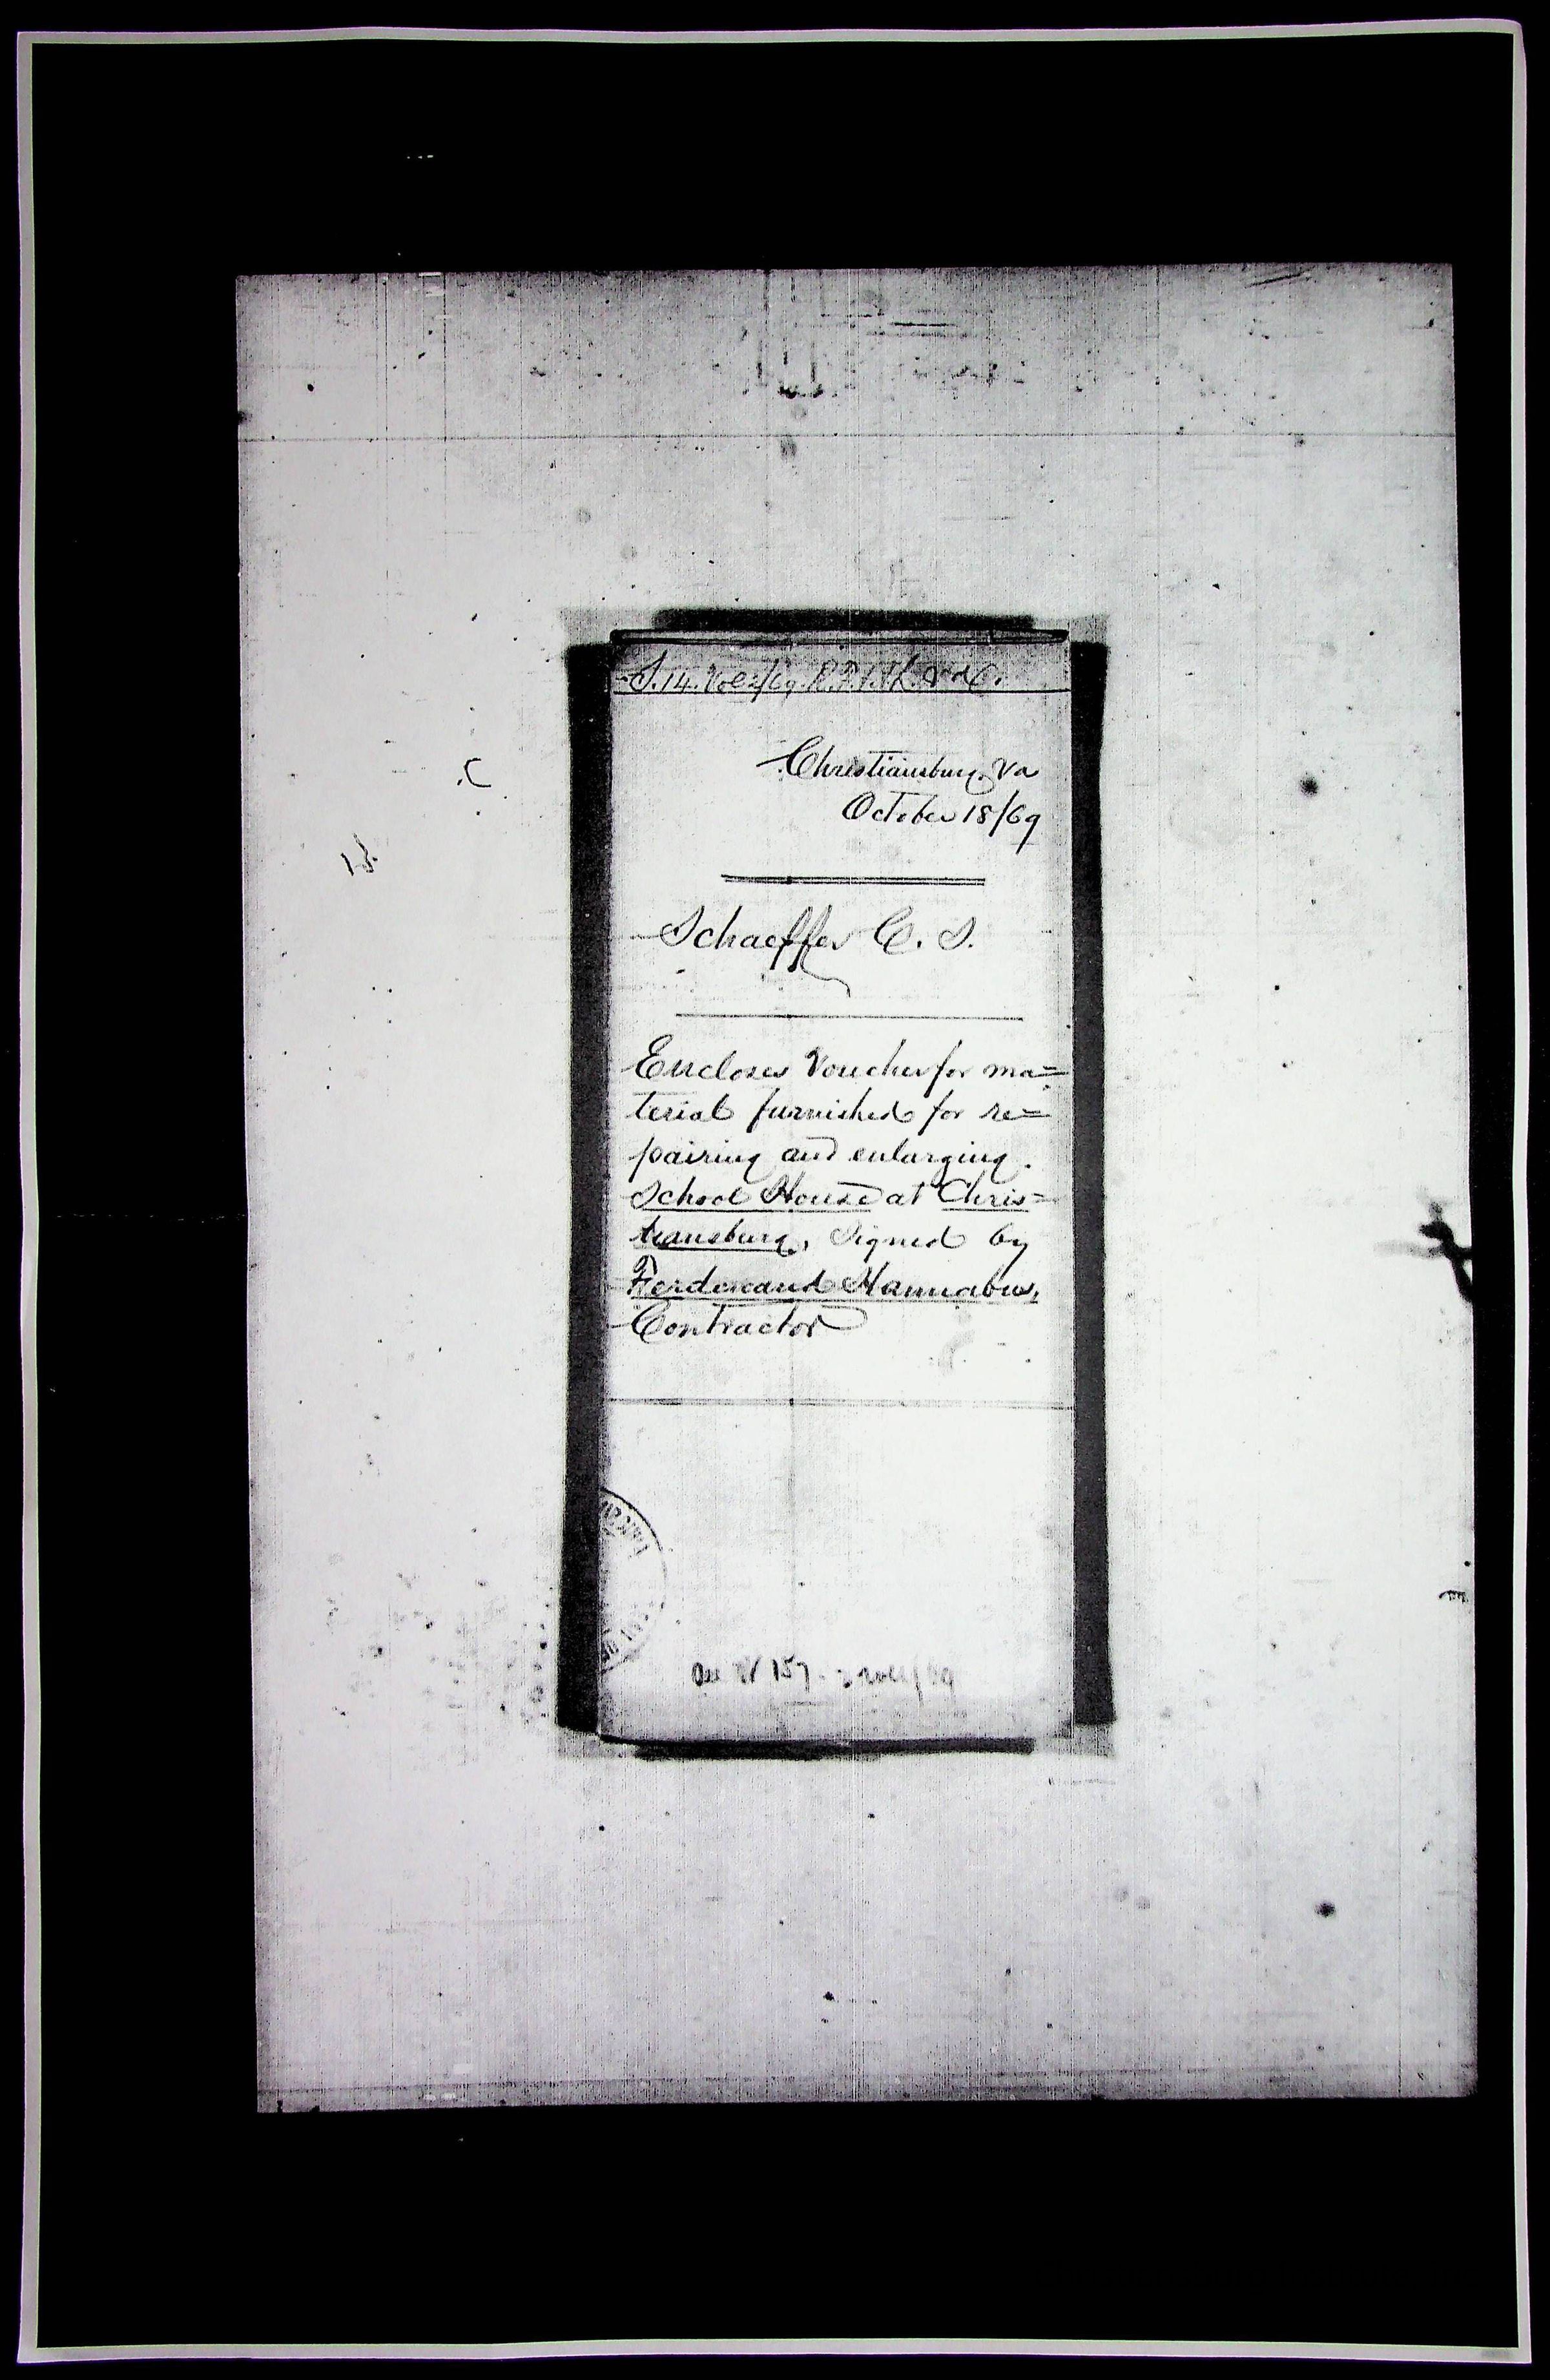 S. 14. Vol 2/69. R. F. &
Christiansburg. Va
October 18/69
Schaeffer C. S.
Encloses Voucher for ma=
terial furnished for re=
pairing and enlarging.
School House at Chris=
tiansburg, Signed by
Ferdinand Hannabus,
Contractor
157